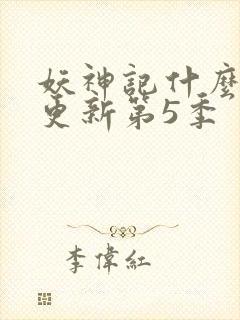 妖神記什麼
更新第5季
李偉紅